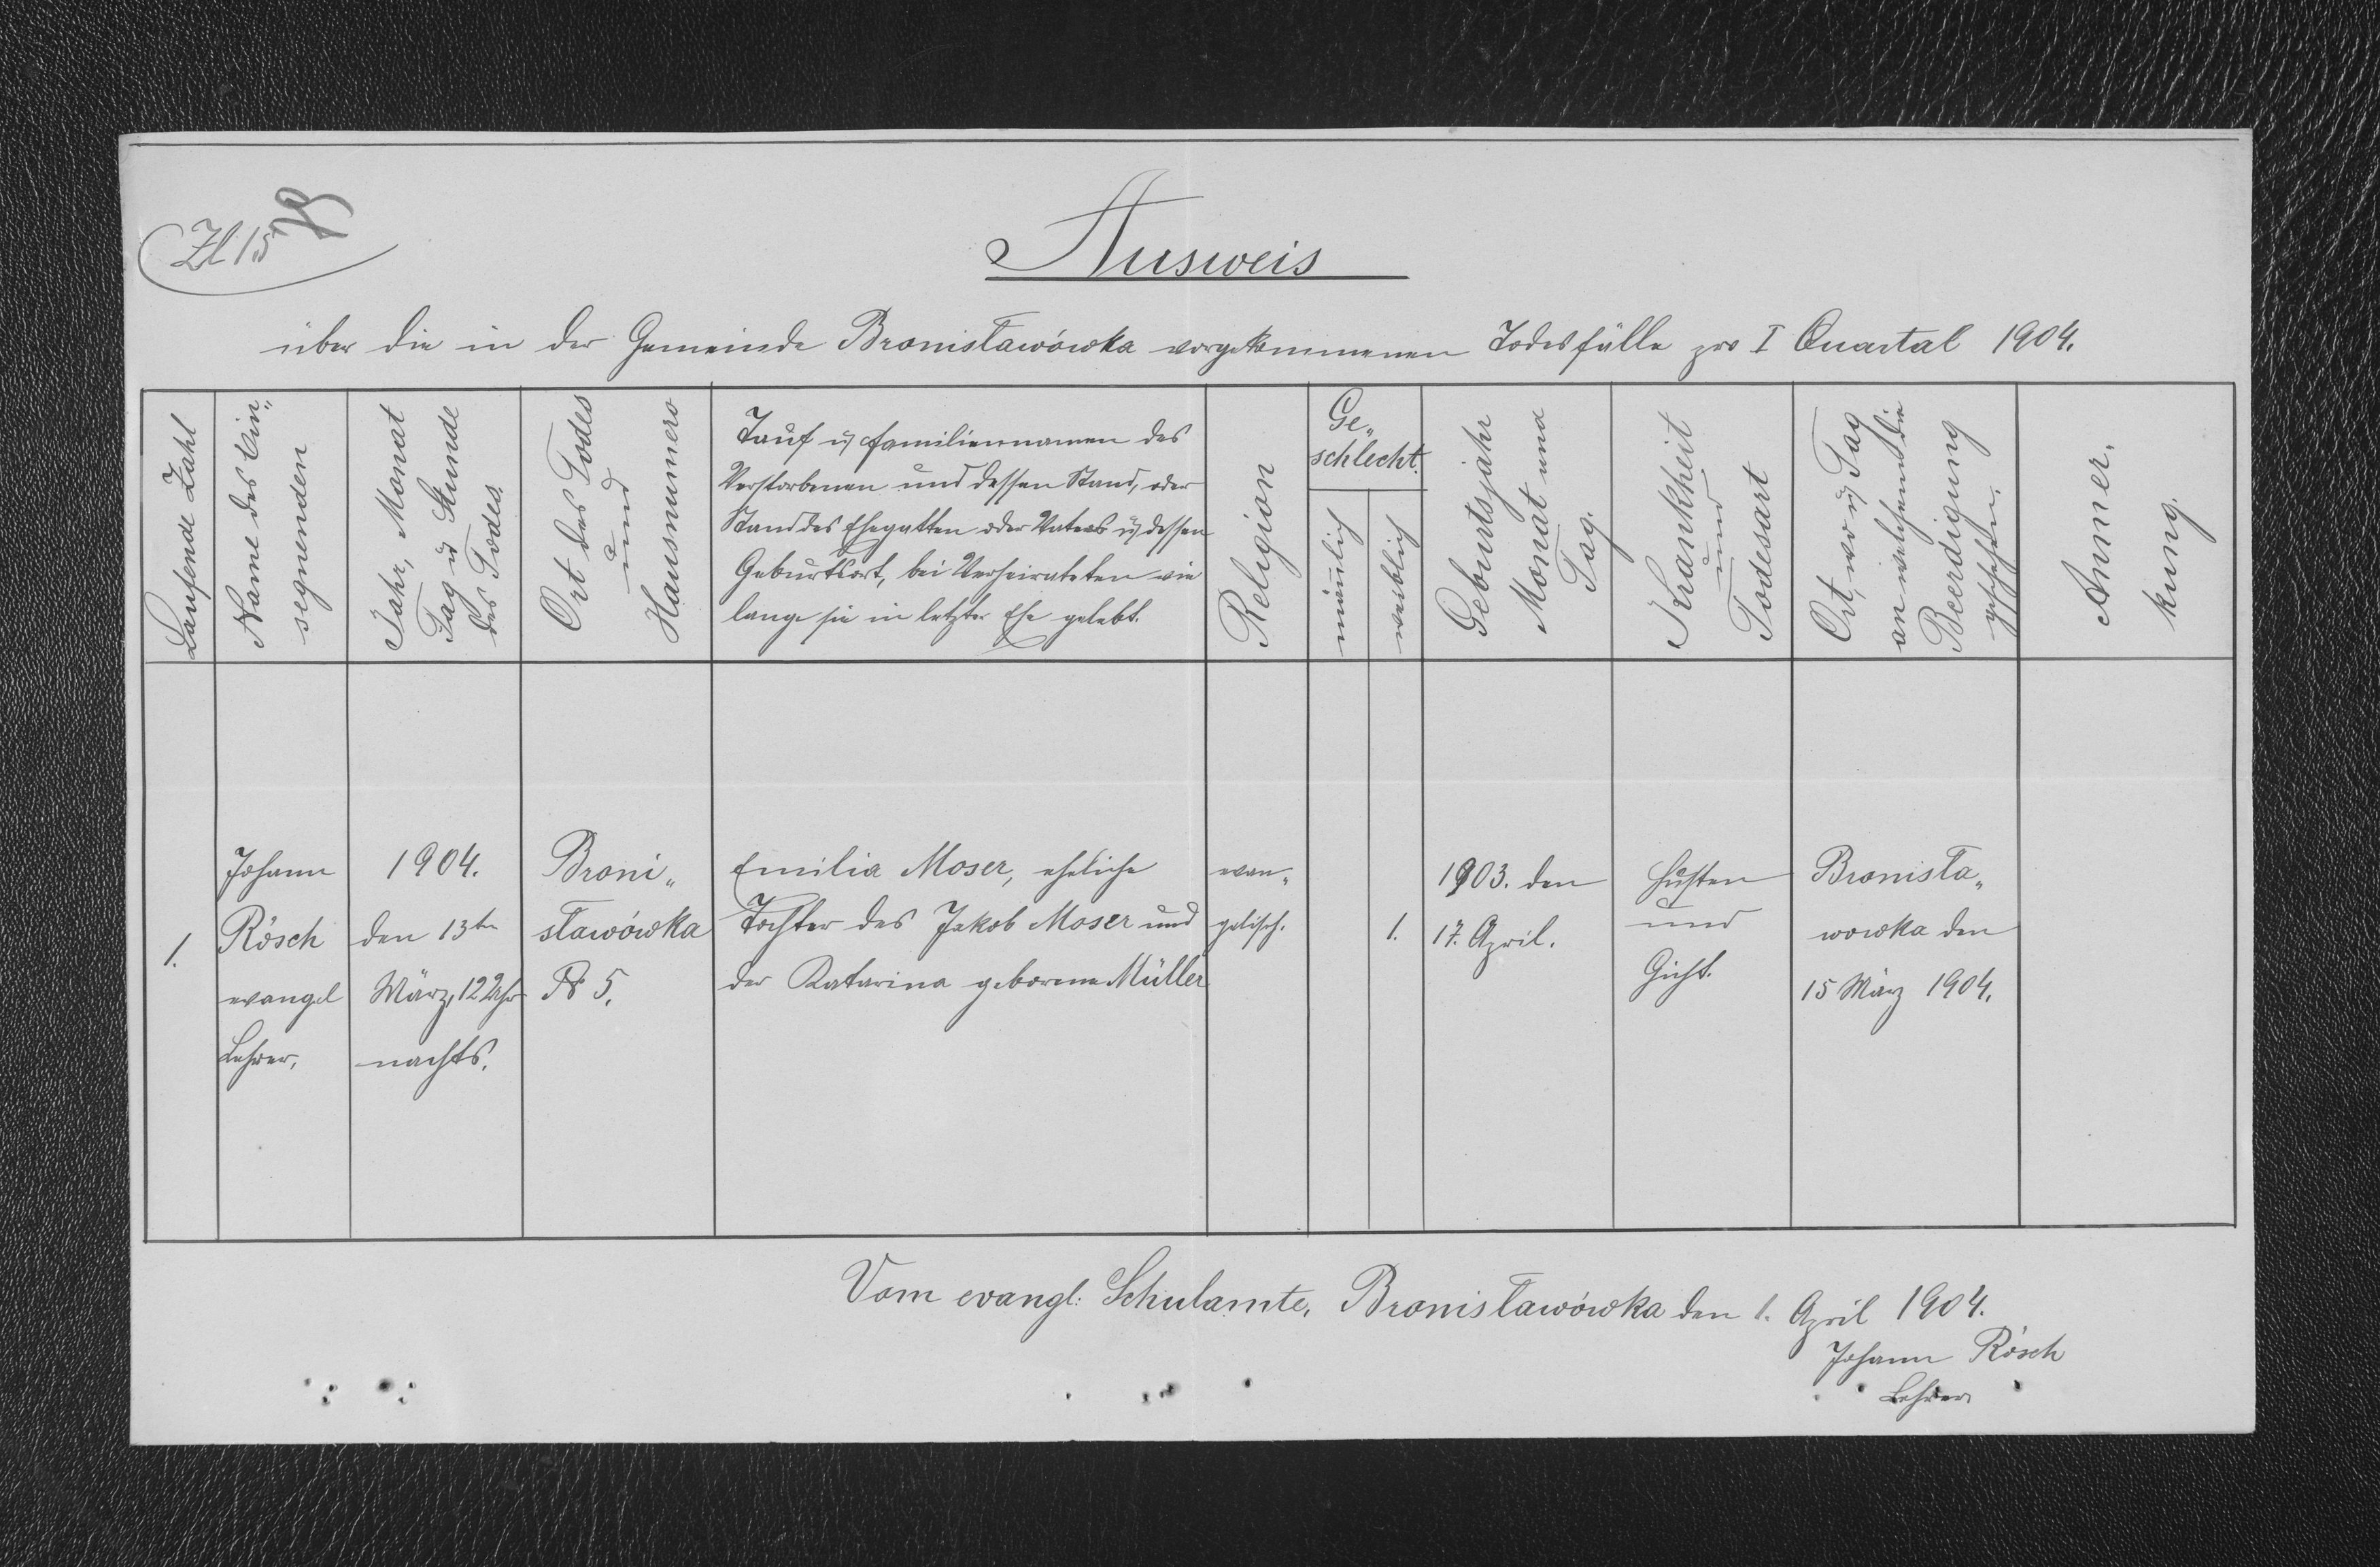 Zl 15
Ausweis
über die in der Gemeinde Bronisławówka vorgekommenen Todesfälle pro I Quartal 1904.
Laufende Zahl
Name des Ein„
segnenden
Jahr, Monat
Tag u Stunde
des Todes.
Ort des Todes
und
Hausnumero
Tauf u Familiennamen des
Verstorbenen und dessen Stand, oder
Stand des Ehegatten oder Vaters u dessen
Geburtsort, bei Verheirateten wie
lange sie in letzter Ehe gelebt.
Religion
Ge„
schlecht.
männlich
weiblich
Geburtsjahr
Monat und
Tag.
Krankheit
und
Todesart
Ort, wo u Tag
an welchem die
Beerdigung
geschehen.
Anmer„
kung.
1.
Johann
Rösch
evangel
Lehrer,
1904.
den 13ten
März, 12 Uhr
nachts.
Broni„
sławówka
№ 5.
Emilia Moser, eheliche
Tochter des Jakob Moser und
der Katarina geborene Müller
evan„
gelisch.
1.
1903. den
17. April.
Husten
und
Gicht.
Bronisła„
wowka den
15 März 1904.
Vom evangl: Schulamte, Bronisławówka den 1. April 1904.
Johann Rösch
Lehrer